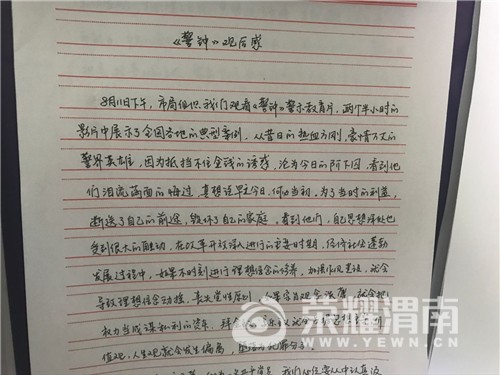 《警钟》观后感
8月11日下午，市局组织我们观看《警钟》警示教育片，两个半小时的
影片中展示了全国各地的典型案例，从昔日的热血方刚，豪情万丈的
警界英雄，因为抵挡不住金钱的诱惑，沦为今日的阶下囚，看到他
们泪流满面的悔过，真想说早知今日，何必当初，为了当时的利益，
断送了自己的前途，毁掉了自己的家庭，看到他们，自己思想深处也
受到很大的触动，在改革开放深入进行的重要时期，经济社会蓬勃
发展过程中，如果不时刻进行理想信念的修养，加强
导致理想信念动摇，丧失党性原则，就会把
权力当成谋私利的资本，拜金
值观、人生观就会发生偏离，
我们
荣耀渭南
WWW.YEWN.CN